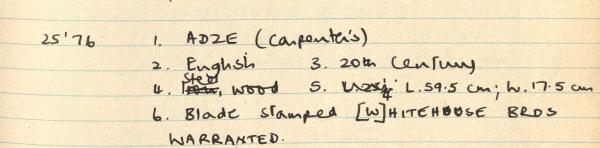 25'76 1. ADZE (Carpenter's)
2. English 3. 20th Century
Steel
4. wood 5. L.59.5 cm; W.17.5 cm
6. Blade stamped [W]HITEHOUSE BROS
WARRANTED.